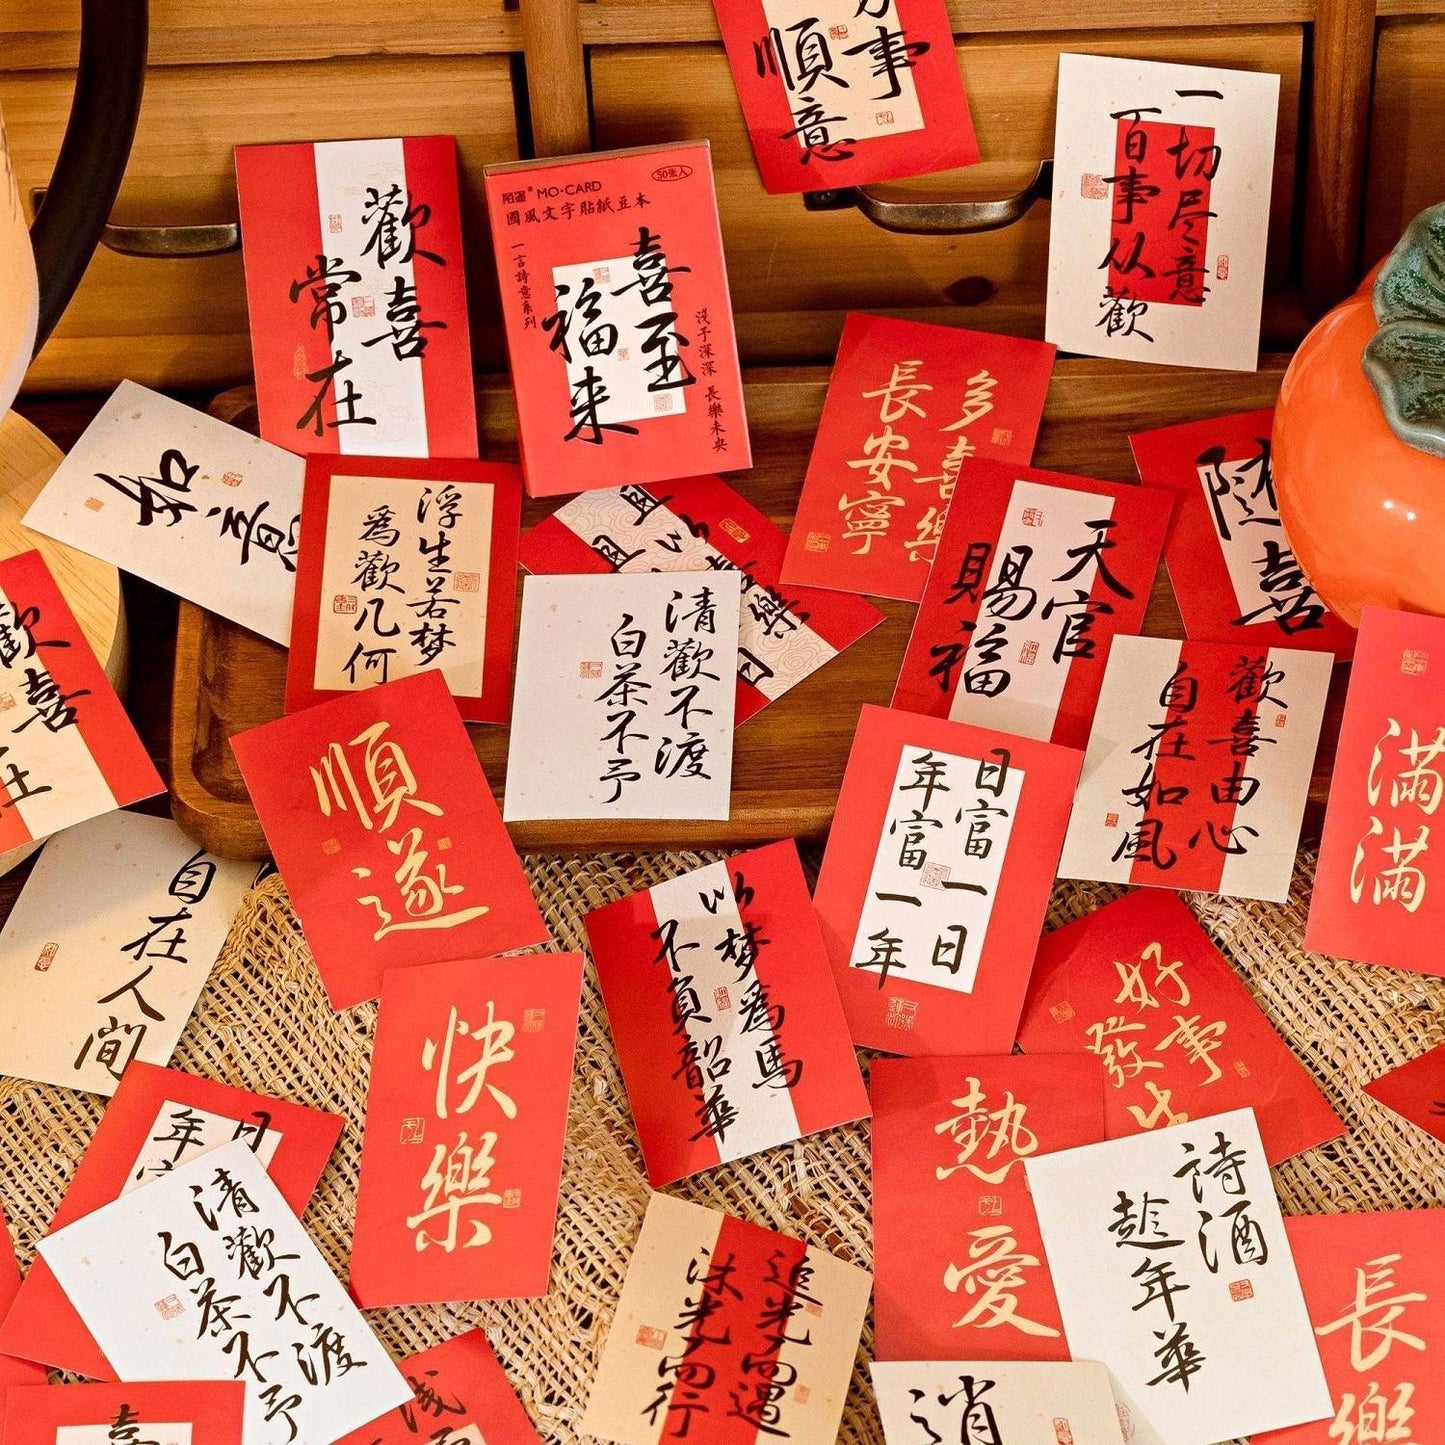 万事
順意
一切尽意
百事从歡
歡喜
常在
陌墨® MO·CARD
50张入
國風文字貼紙豆本
一言詩意系列
喜至
福来
浅予深深 長樂未央
多喜樂
長安寧
如意
浮生若梦
為歡几何
隨喜
天官
賜福
清歡不渡
白茶不予
歡喜由心
自在如風
歡喜
在
順遂
日富一日
年富一年
滿滿
自在人間
以梦為馬
不負韶華
快樂
好事
發生
熱愛
詩酒
趁年華
日
年富
清歡不渡
白茶不予
追光而遇
沐光而行
長樂
消
浅
喜